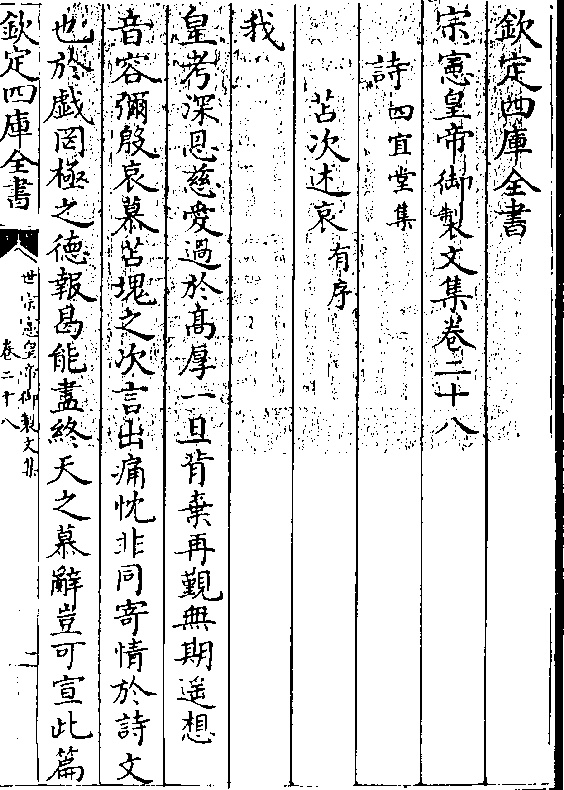 欽定四庫全書
宗憲皇帝御製文集卷二十八
詩四宜堂集
苫次述哀有序
我
皇考深恩慈愛過於髙厚一旦背棄再覲無期遥想
音容彌殷哀慕苫塊之次言出痛忱非同寄情於詩文
也於戲罔極之德報曷能盡終天之慕辭豈可宣此篇
欽定四庫全書
世宗憲皇帝御製文集
卷二十八
一